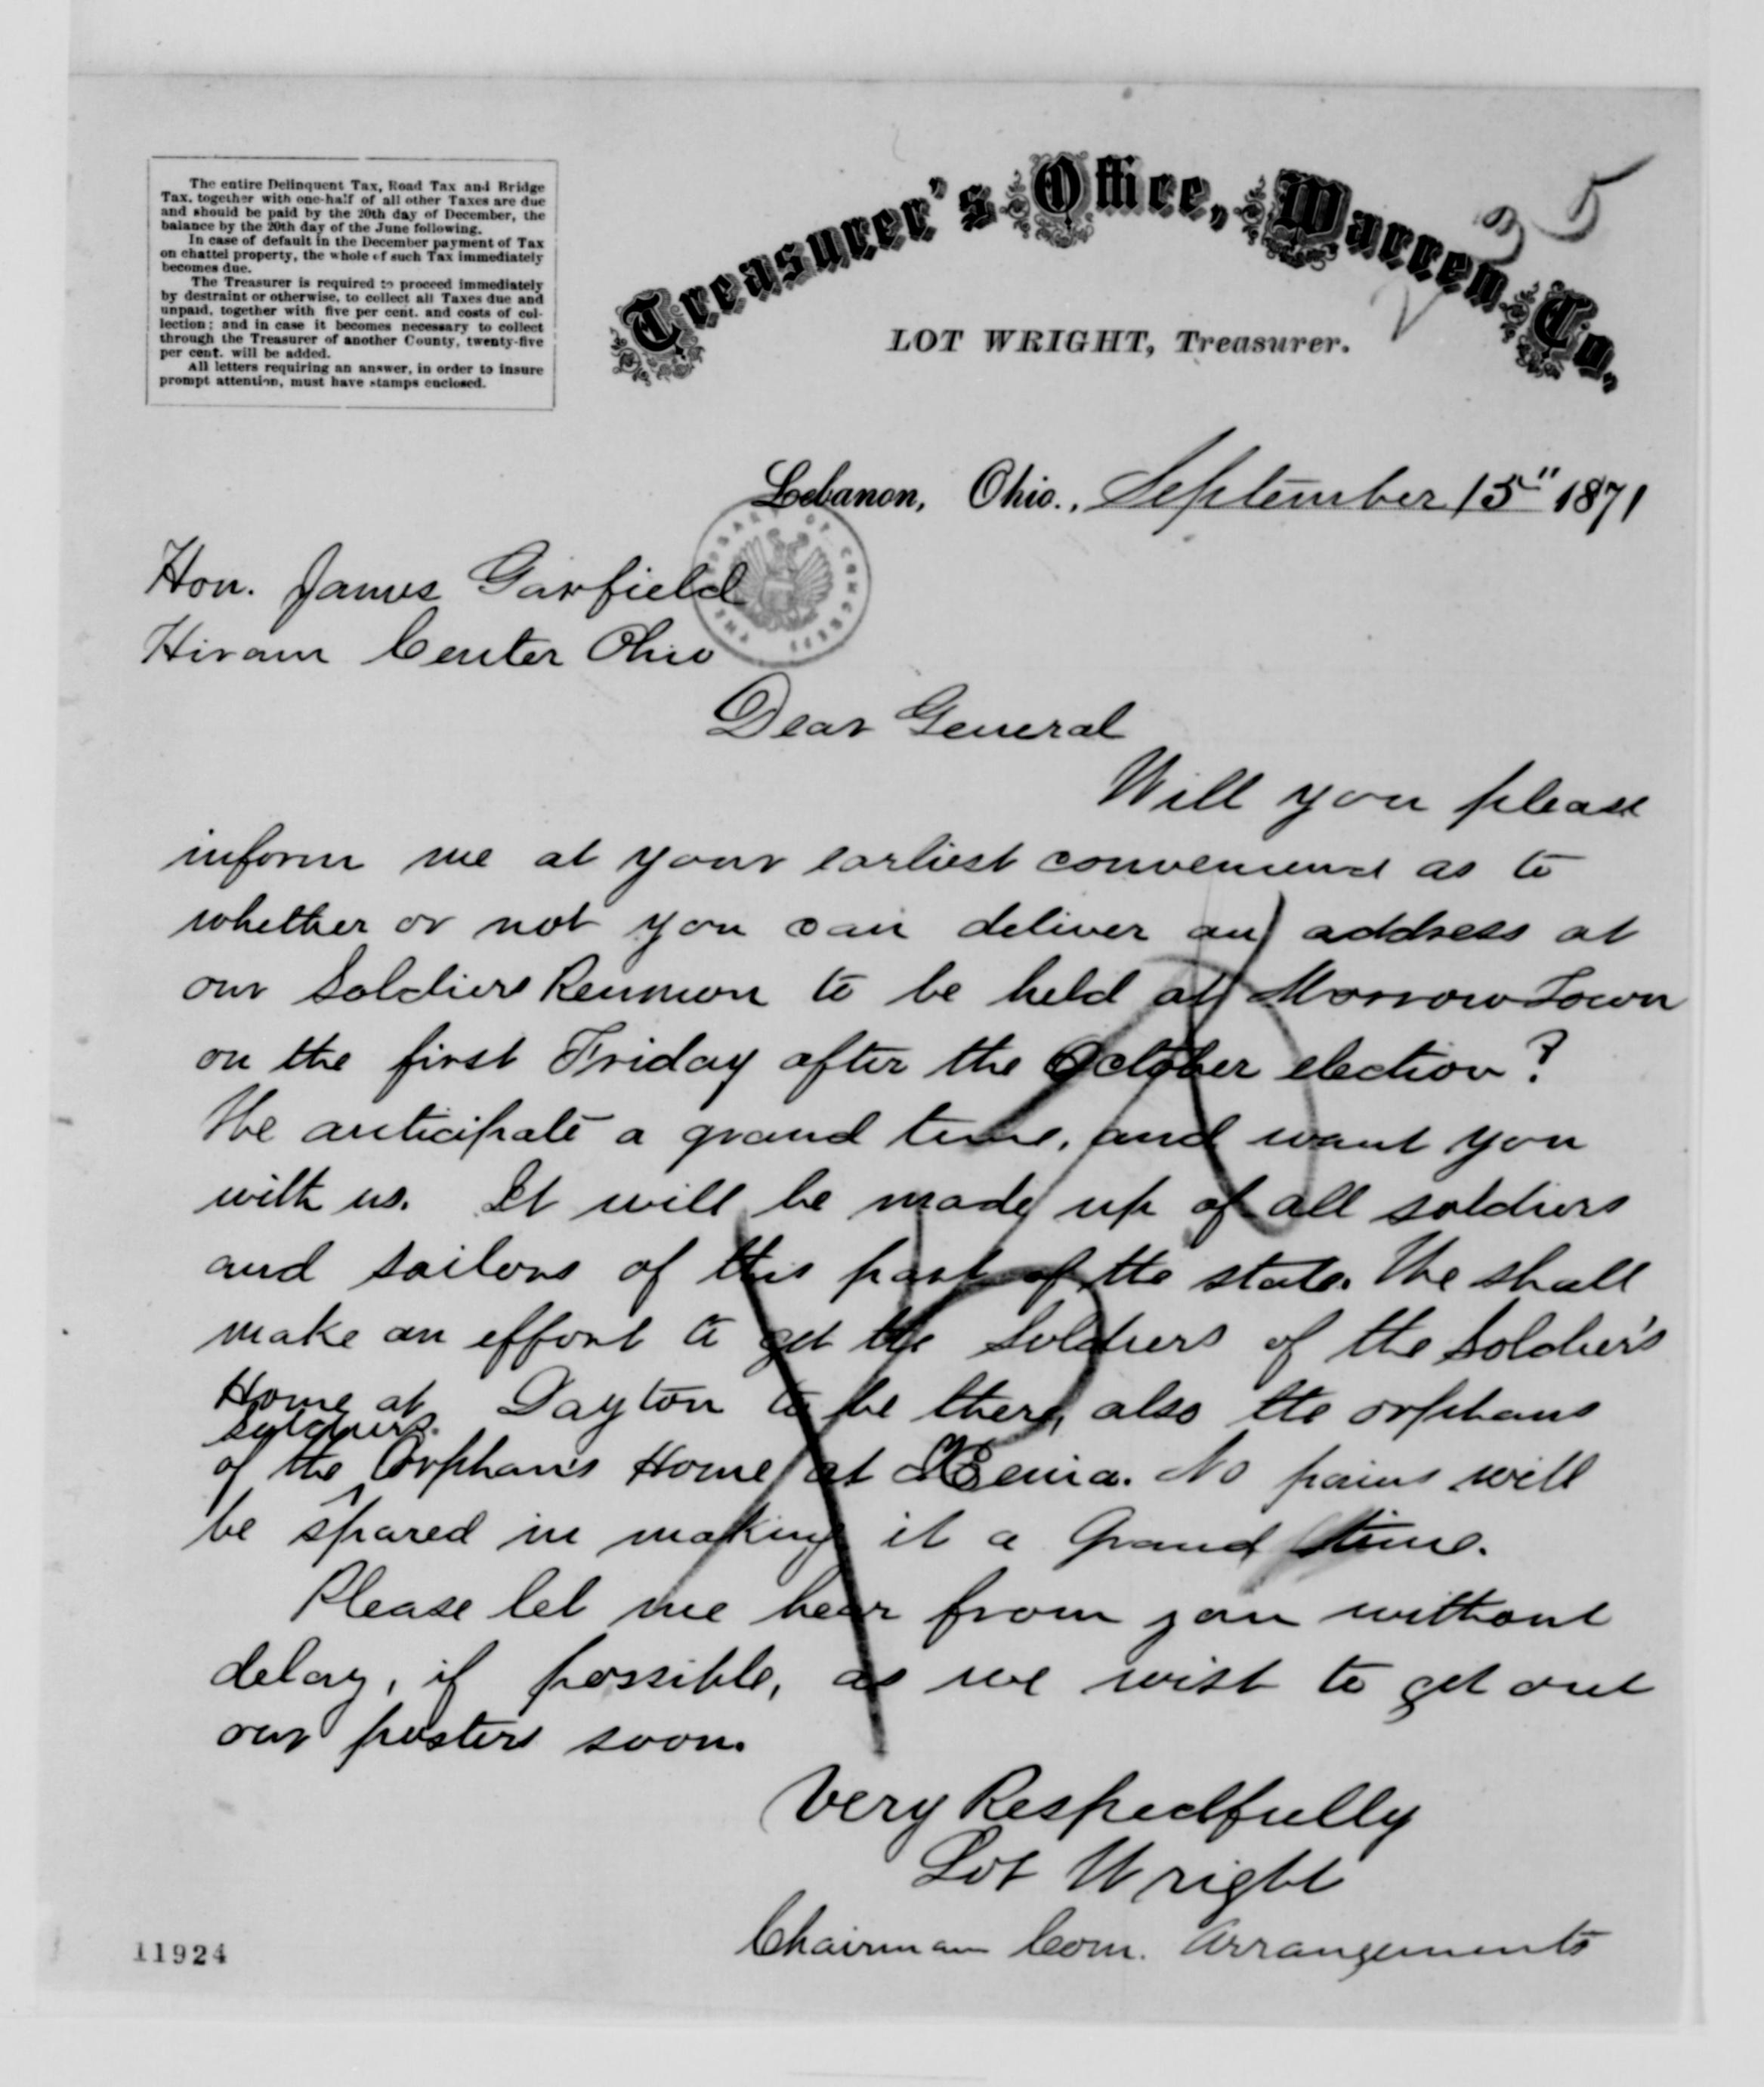 The entire Delinquent Tax, Road Tax and Bridge
Tax, together with one-half of all other Taxes are due
and should be paid by the 20th day of December, the
balance by the 20th day of the June following.
In case of default in the December payment of Tax
on chattel property, the whole of such Tax immediately
becomes due.
The Treasurer is required to proceed immediately
by destraint or otherwise, to collect all Taxes due and
unpaid, together with five per cent. and costs of col-
lection; and in case it becomes necessary to collect
through the Treasurer of another County, twenty-five
per cent. will be added.
All letters requiring an answer, in order to insure
prompt attention, must have stamps enclosed.
Treasurer's Office, Warren Co.,
35
LOT WRIGHT, Treasurer.
Lebanon, Ohio., September 15" 1871
THE LIBRARY OF CONGRESS
Hon. James Garfield
Hiram Center Ohio
Dear General
Will you please
inform me at your earliest convenience as to
whether or not you can deliver an address at
our Soldiers Reunion to be held at Morrow Town
on the first Friday after the October election?
We anticipate a grand time, and want you
with us. It will be made up of all soldiers
and sailors of this part of the state. We shall
make an effort to get the Soldiers of the Soldier's
Home at Dayton to be there, also the orphans
soldiers.
of the Orphan's Home at Xenia. No pains will
be spared in making it a Grand time.
Please let me hear from you without
delay, if possible, as we wish to get out
our posters soon.
Very Respectfully
Lot Wright
Chairman Com. Arrangements
11924